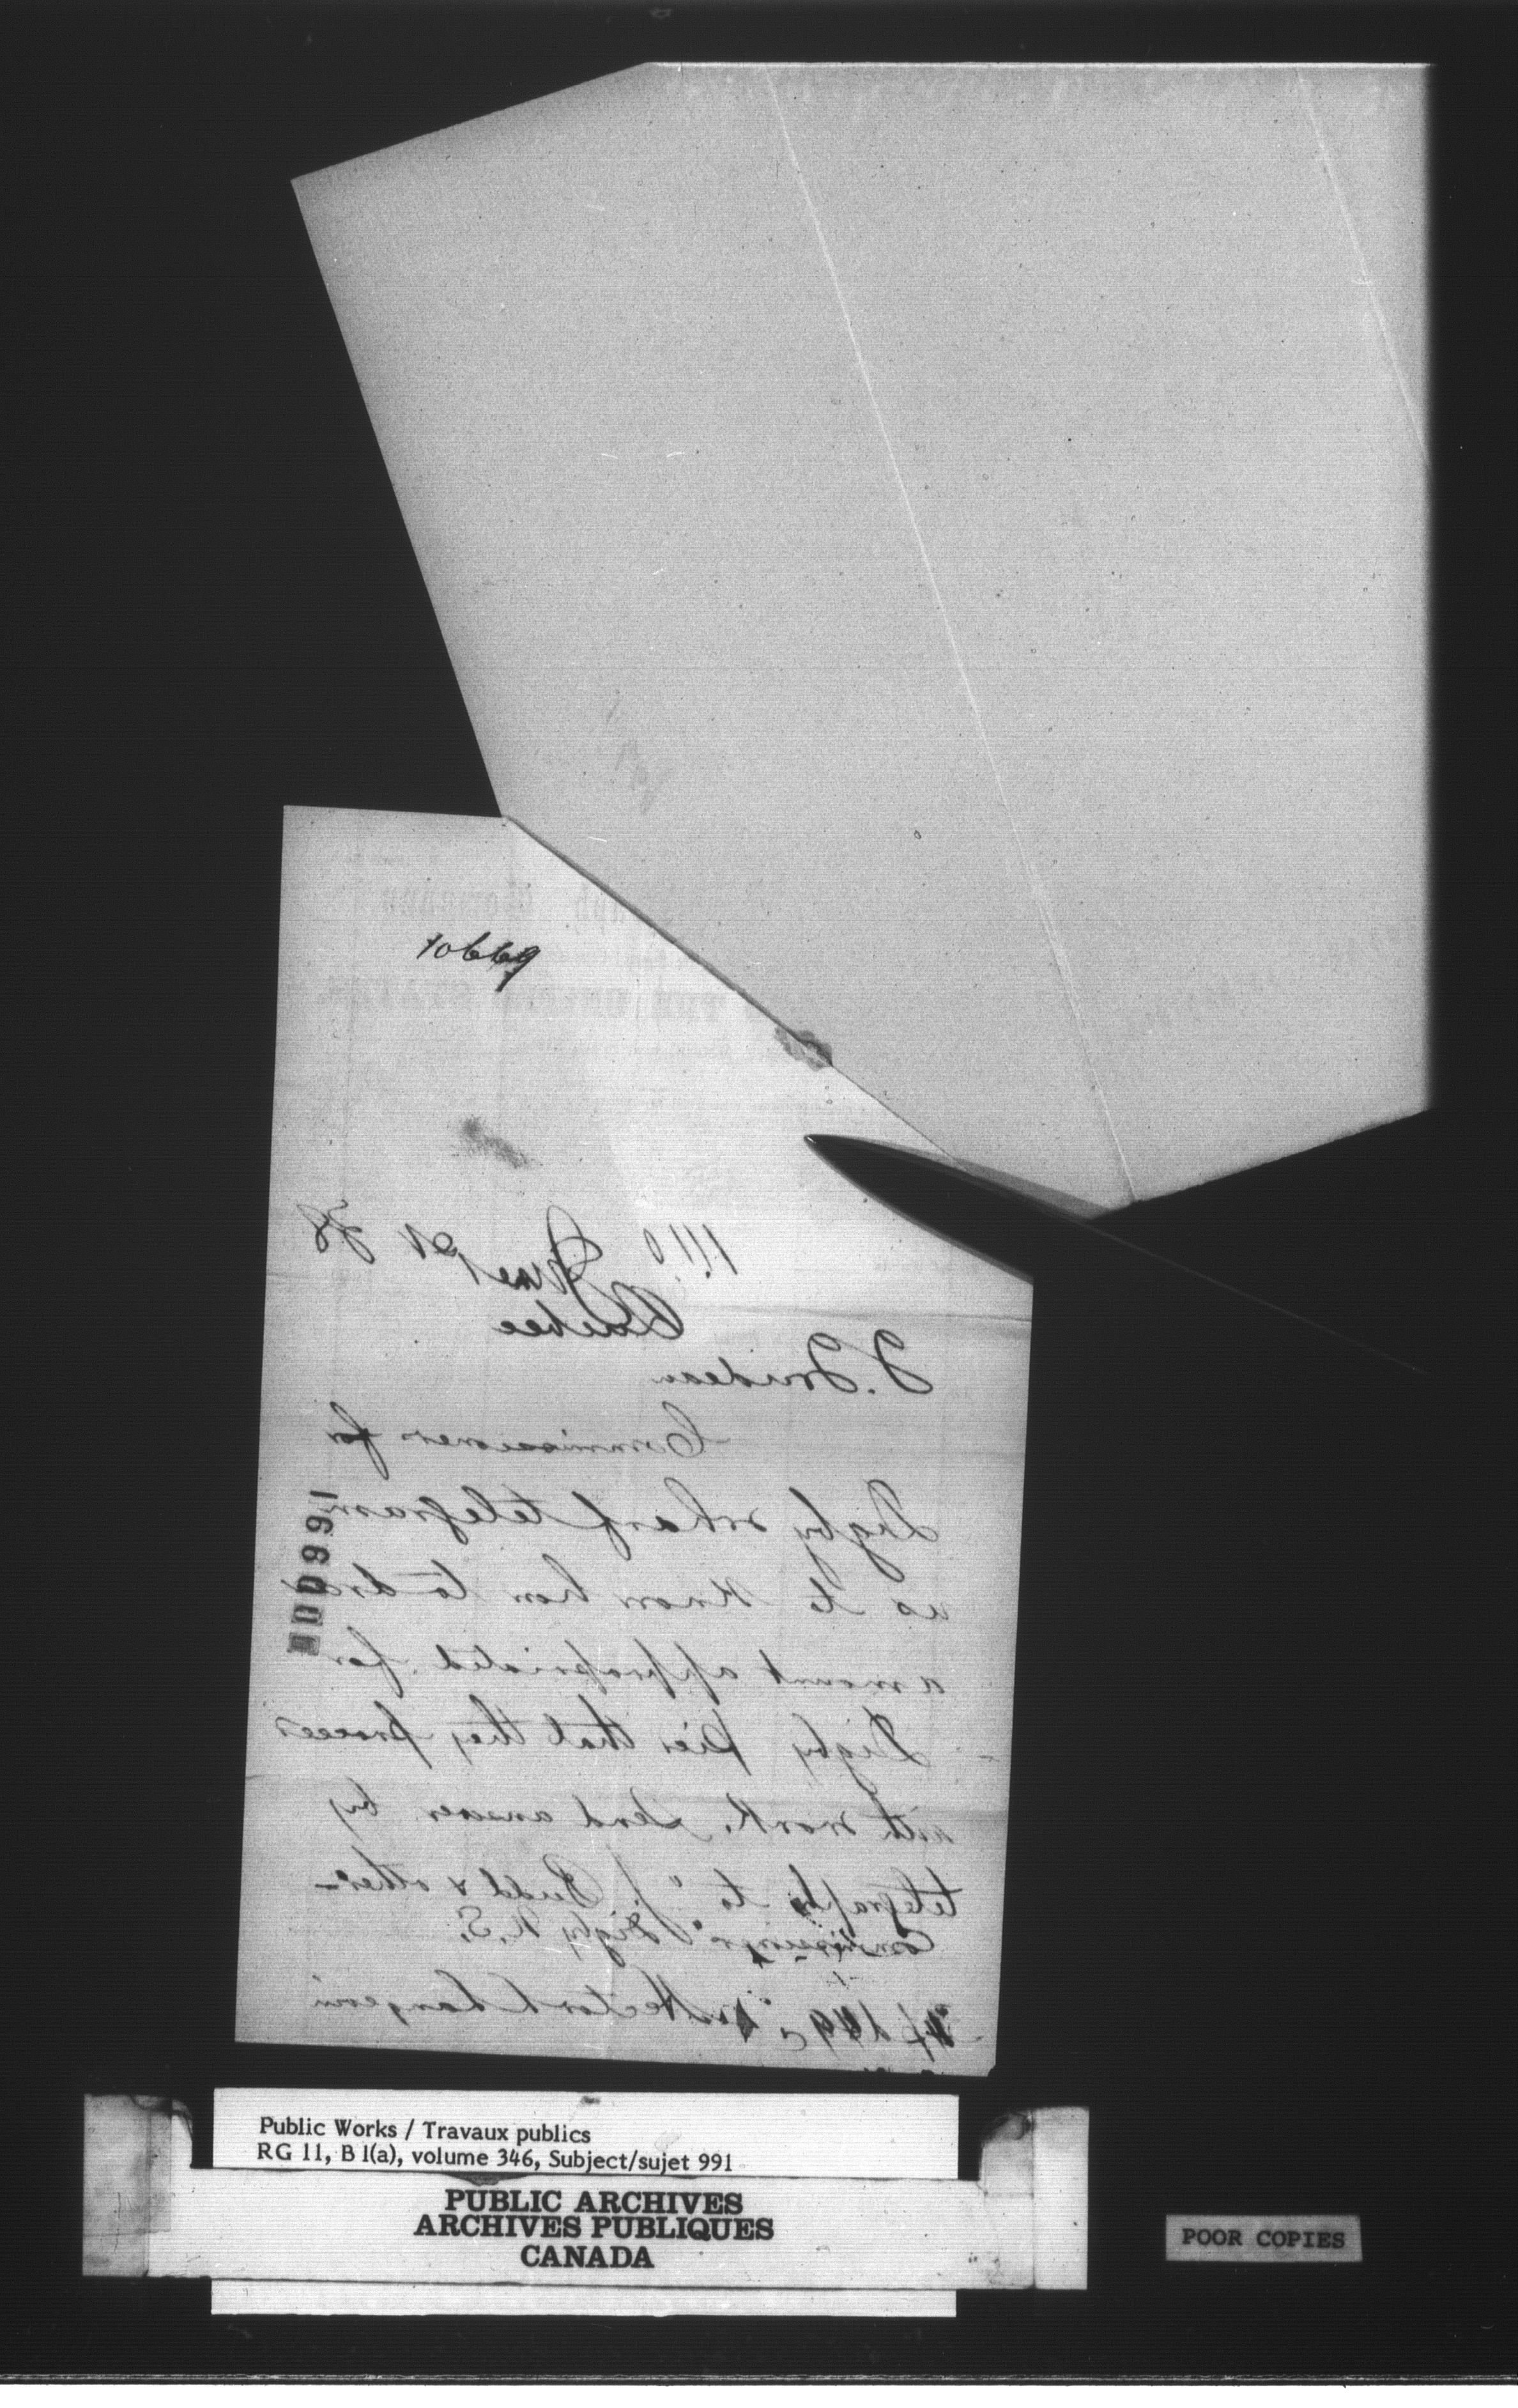 10669
June 21 78
Quebec
T. Trudeau
Commissioners for
Digby wharf telegram
us to know how to draw
amount appropriated for
Digby Pier that they proceed
with work. Send answer by
telegraph to "J. Budd & other
Commissioners" Digby N.S.
Hector L Langevin
000991
Public Works / Travaux publics
RG 11, B 1(a), volume 346, Subject/sujet 991
PUBLIC ARCHIVES
ARCHIVES PUBLIQUES
CANADA
POOR COPIES